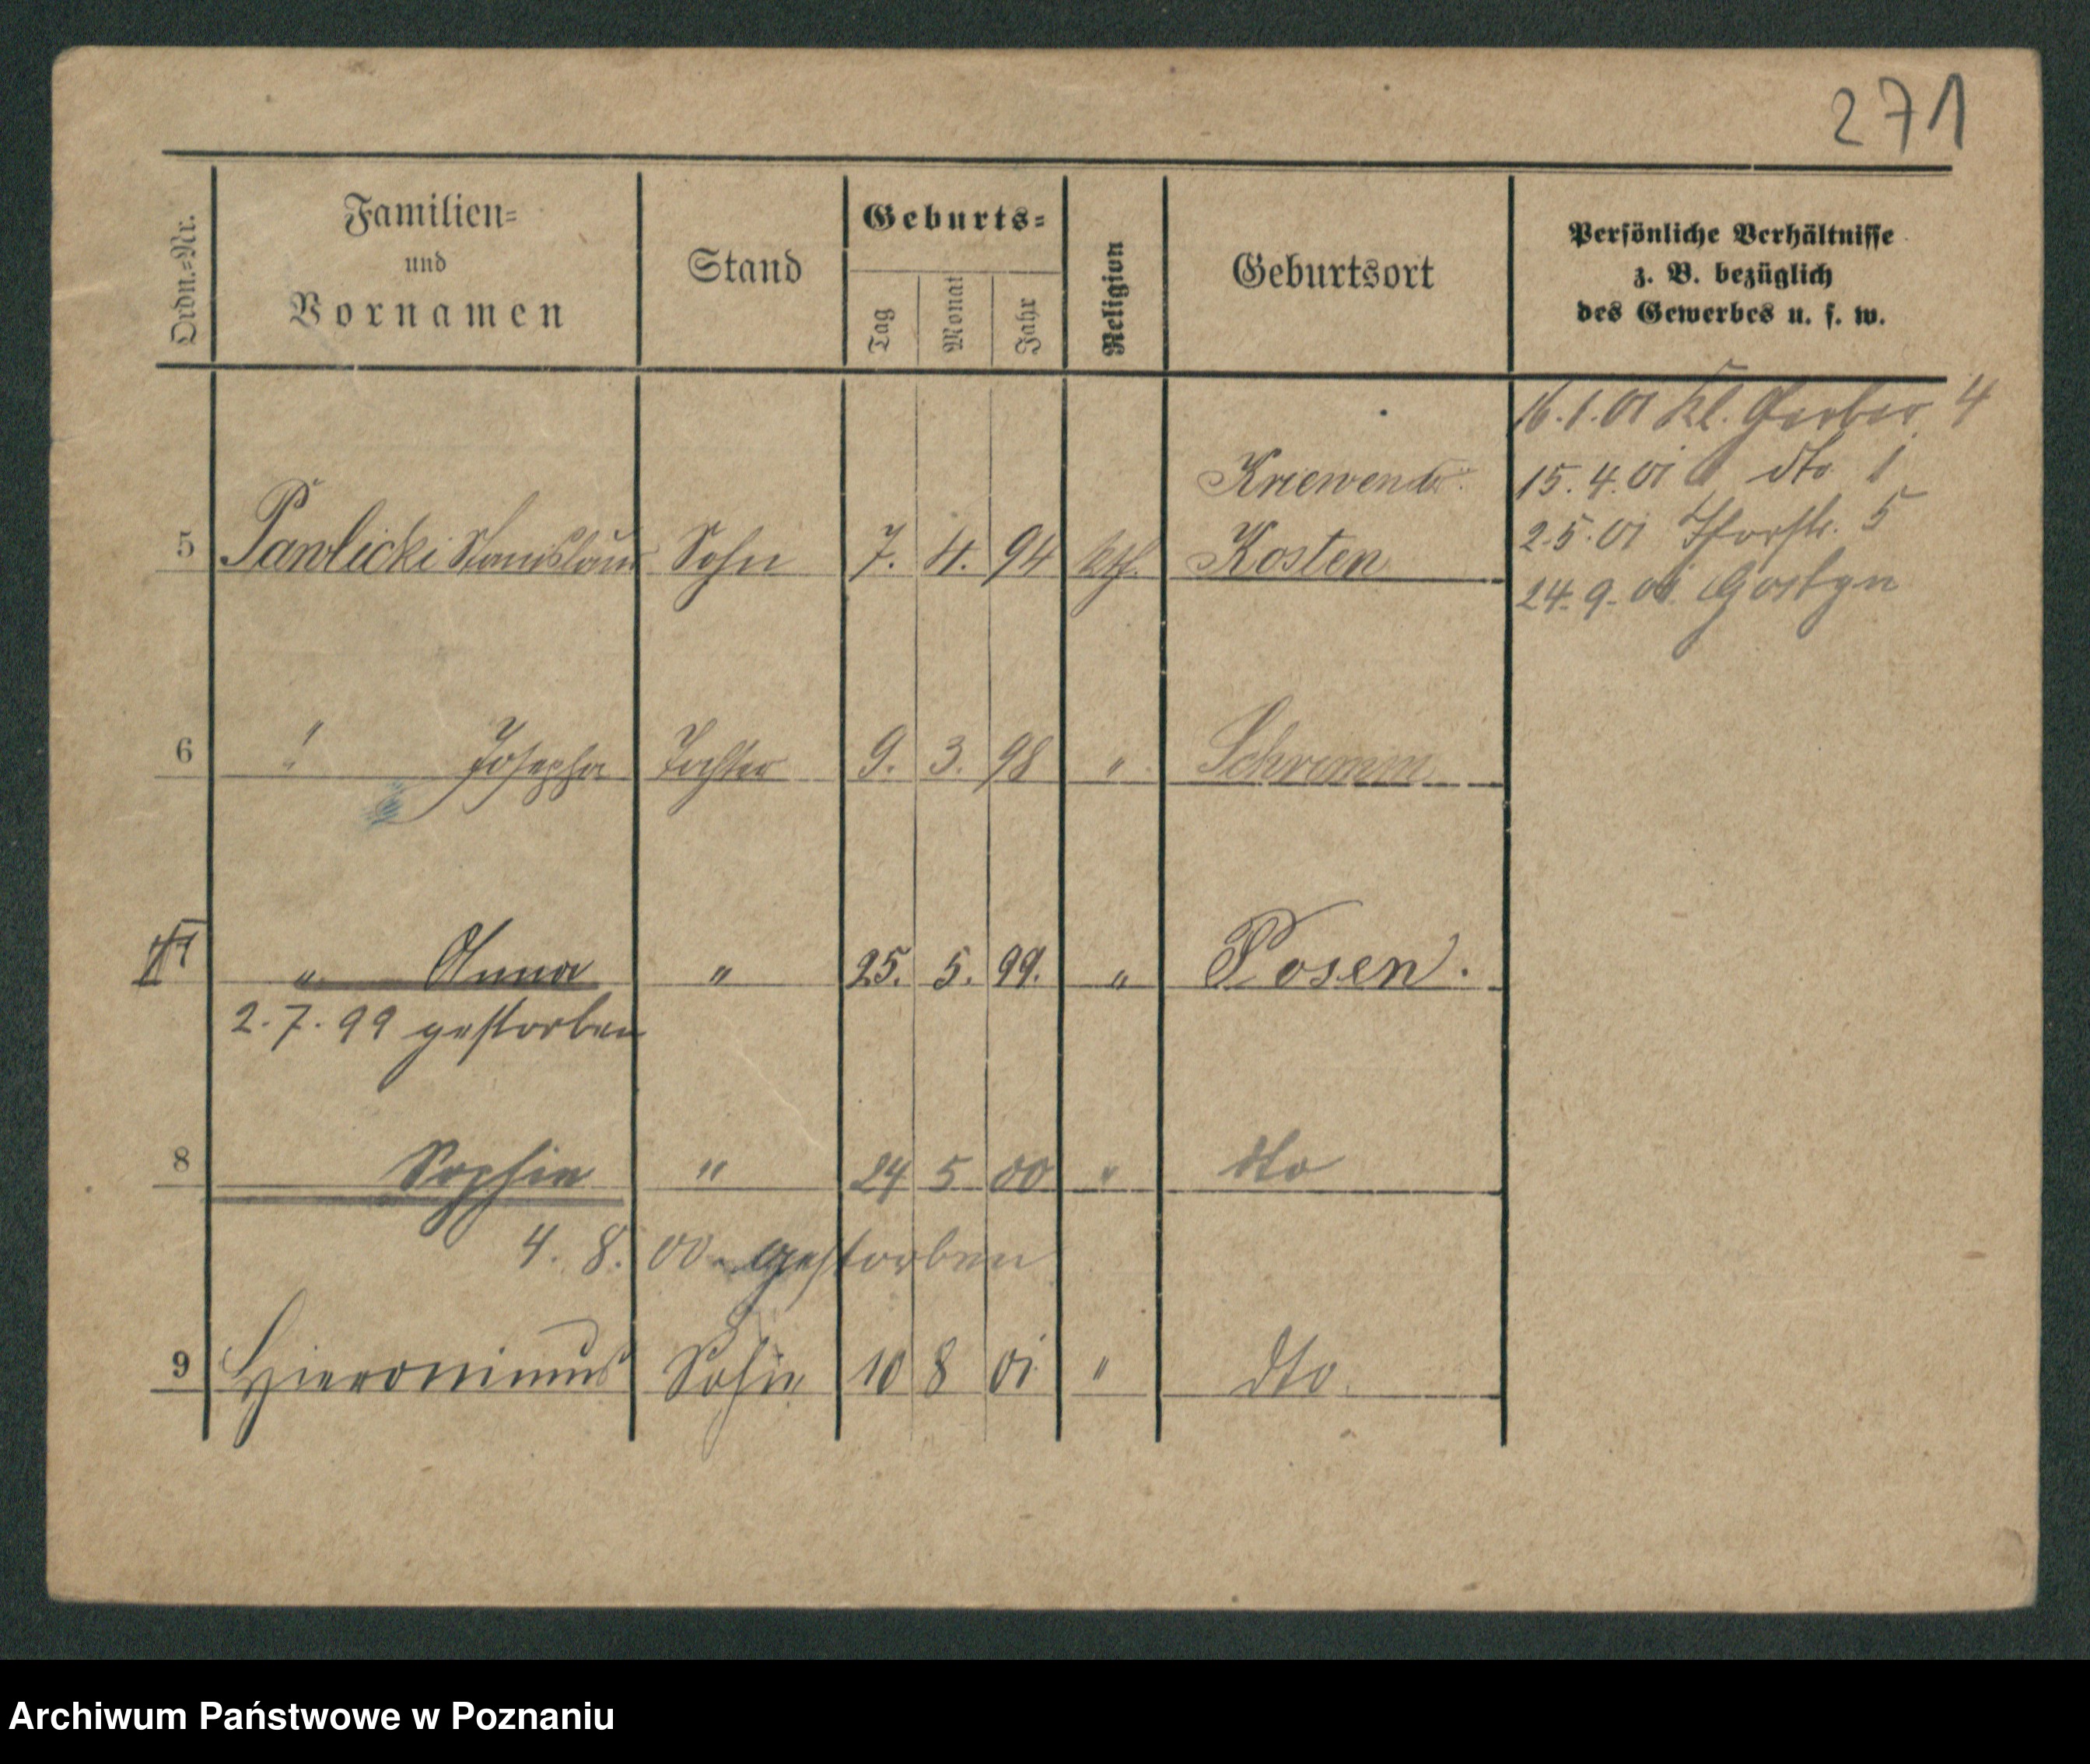 271
Ordn.-Nr.
Familien-
und
Vornamen
Stand
Geburts-
Tag
Monat
Jahr
Religion
Geburtsort
Persönliche Verhältnisse
z. B. bezüglich
des Gewerbes u. s. w.
16.1.01 Kl. Gerber 4
15.4.01 dto 1
2.5.01 Thorstr. 5
24.9.01 Gostyn
5 Pawlicki Stanislaus Sohn 7. 4. 94 kth. Kosten
6 " Josepha Tochter 9. 3. 98 " Schrimm
7 " Anna " 25. 5. 99. " Posen.
2.7.99 gestorben
8 Sophie " 24 5 00 " dto
4. 8. 00. gestorben
9 Hieronimus Sohn 10 8 01 " dto.
Archiwum Państwowe w Poznaniu